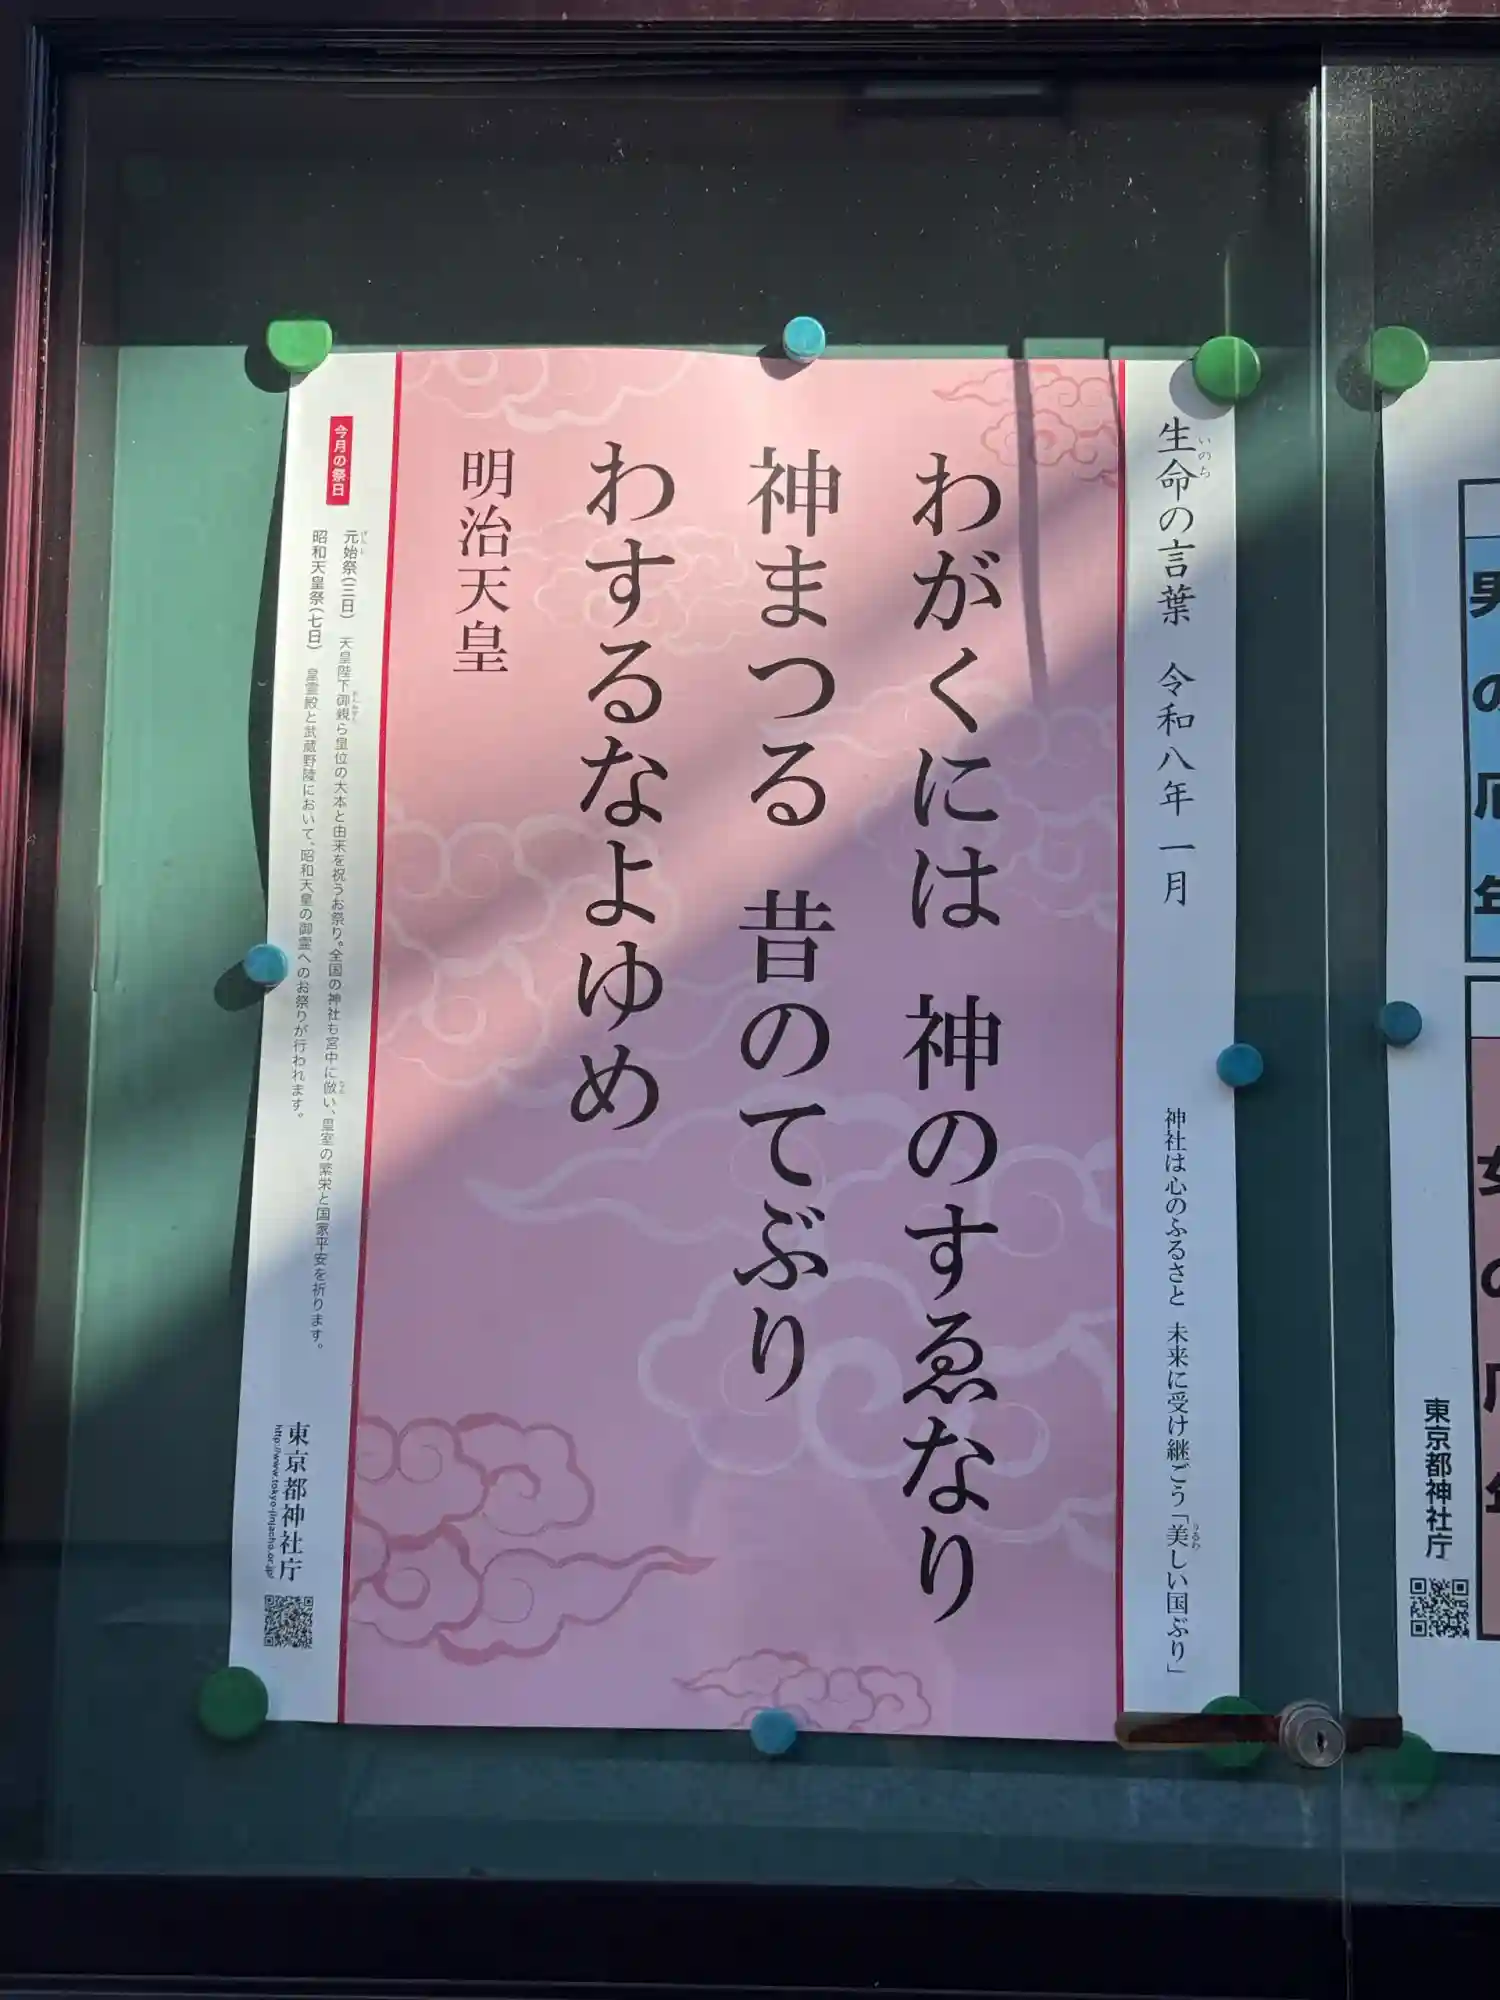 生命の言葉 令和八年 一月
いのち
神社は心のふるさと 未来に受け継ごう「美しい国ぶり」
うるわ
わがくには 神のすゑなり
神まつる 昔のてぶり
わするなよゆめ
明治天皇
今月の祭日
元始祭(三日) 天皇陛下御親ら皇位の大本と由来を祝うお祭り。全国の神社も宮中に倣い、皇室の繁栄と国家平安を祈ります。
昭和天皇祭(七日) 皇霊殿と武蔵野陵において、昭和天皇の御霊へのお祭りが行われます。
東京都神社庁
http://www.tokyo-jinjacho.or.jp/
男の厄年
女の厄年
東京都神社庁